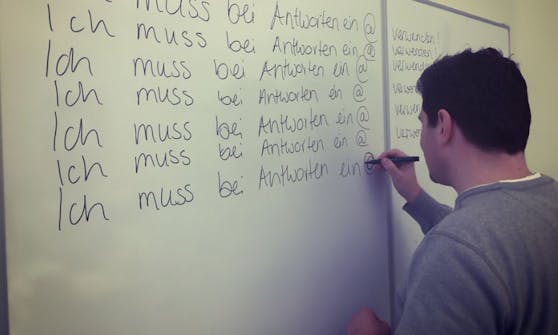 muss bei Antworten ein @ verwenden!
Ich muss bei Antworten ein @ verwenden!
Ich muss bei Antworten ein @ verwenden
Ich muss bei Antworten ein @
Ich muss bei Antworten ein @
Ich muss bei Antworten ein @
Ich muss bei Antworten ein @